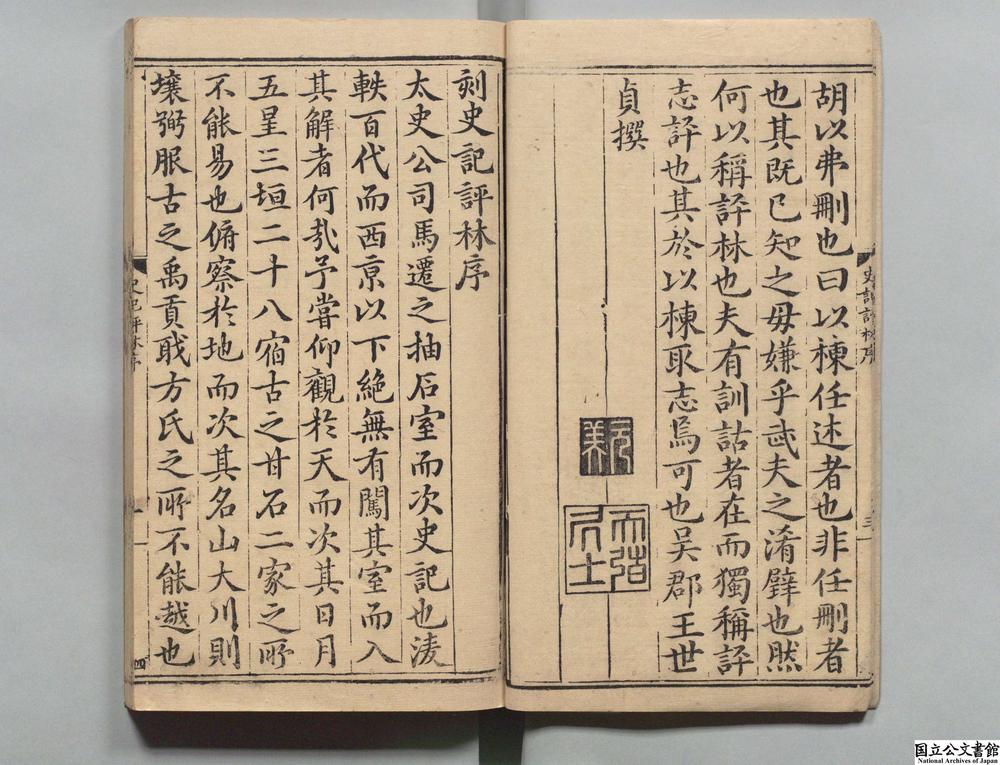 胡以弗刪也曰以棟任述者也非任刪者
也其既已知之毋嫌乎武夫之淆璧也然
何以稱評林也夫有訓詁者在而獨稱評
志評也其於以棟取志焉可也吳郡王世
貞撰
元美
天弢居士
史記評林序
三
刻史記評林序
太史公司馬遷之抽石室而次史記也淩
軼百代而西京以下絕無有闖其室而入
其解者何哉予嘗仰觀於天而次其日月
五星三垣二十八宿古之甘石二家之所
不能易也俯察於地而次其名山大川則
壤弼服古之禹貢職方氏之所不能越也
史記評林序
一
四
国立公文書館
National Archives of Japan